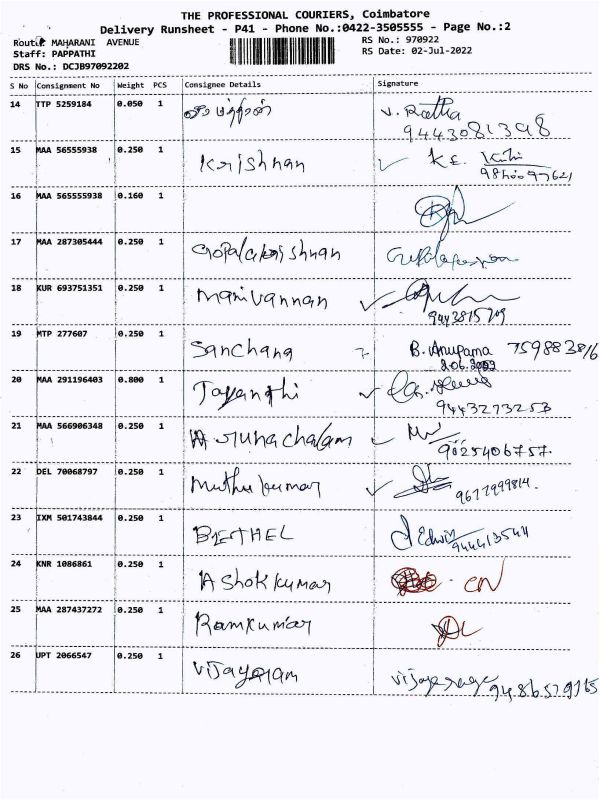 THE PROFESSIONAL COURIERS, Coimbatore
Delivery Runsheet - P41 - Phone No.:0422-3505555 - Page No.:2
Route: MAHARANI AVENUE
RS No.: 970922
Staff: PAPPATHI
RS Date: 02-Jul-2022
DRS No.: DCJB97092202
S No Consignment No Weight PCS Consignee Details Signature
14 TTP 5259184 0.050 1 V. Radha
9443081398
15 MAA 56555938 0.250 1 Krishnan K.S.
16 MAA 565555938 0.160 1
17 MAA 287305444 0.250 1 Gopalakrishnan
18 KUR 693751351 0.250 1 Manivannan
19 MTP 277607 0.250 1 Sanchana B. Anupama 7598838/6
20 MAA 291196403 0.800 1 Jayanthi
9443273253
21 MAA 566906348 0.250 1 Arunachalam
9025406757.
22 DEL 70068797 0.250 1 Muthukumar
9677999814.
23 IXM 501743844 0.250 1 BETHEL Edwin
24 KNR 1086861 0.250 1 Ashokkumar
25 MAA 287437272 0.250 1 Ramkumar
26 UPT 2066547 0.250 1 Vijayaram